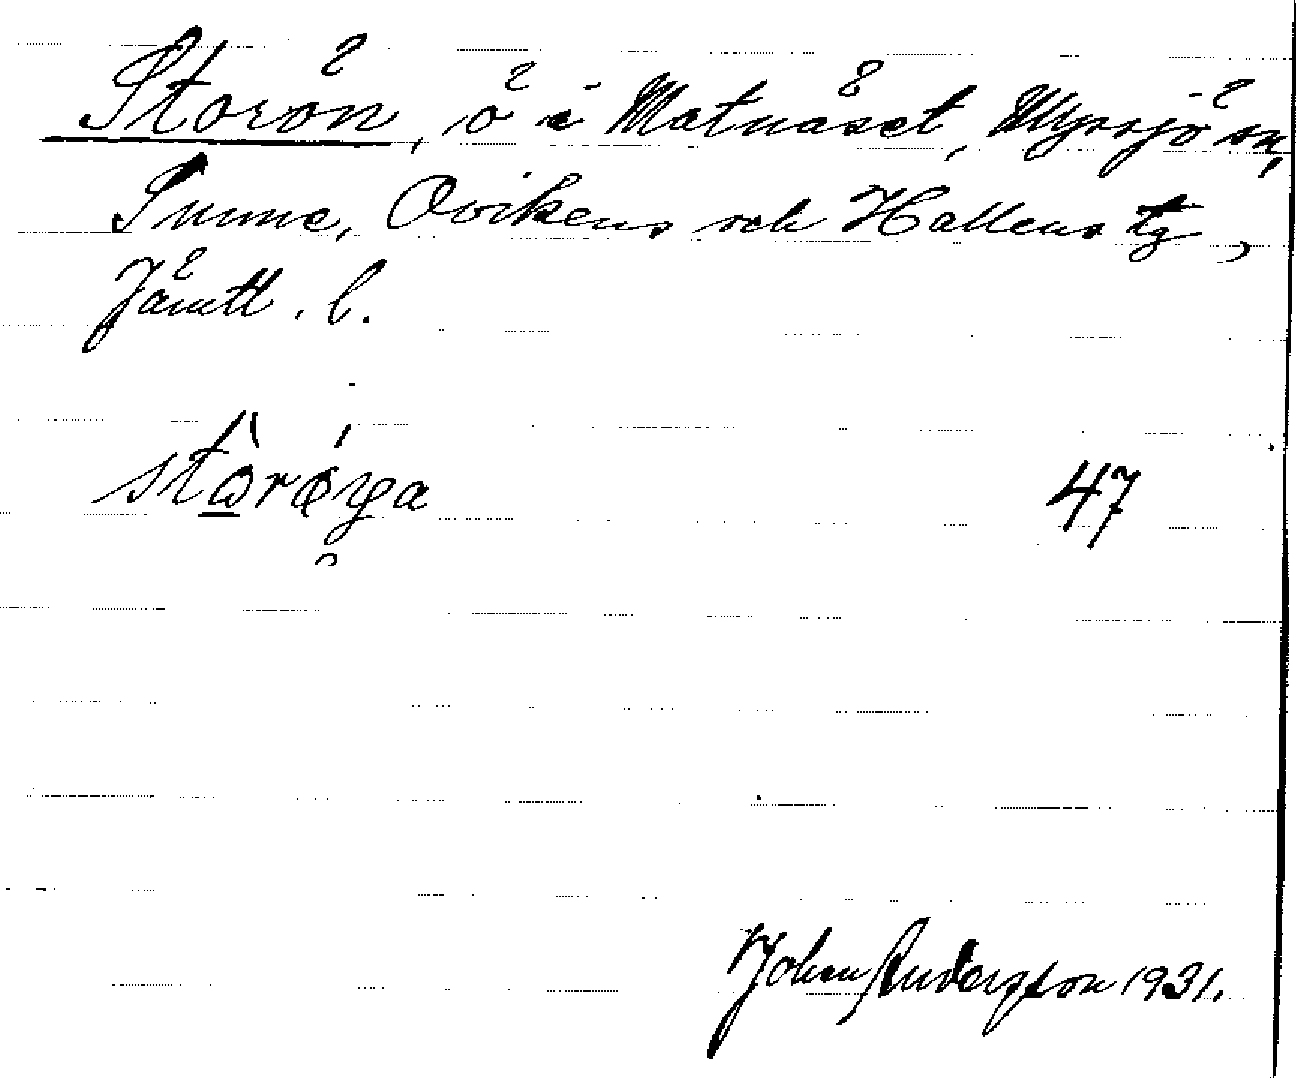 Storön, ö i Matnäset, Myssjö sn,
Sunne, Ovikens och Hallens tg,
Jämtl. l.
47
Johan Andersson 1931.